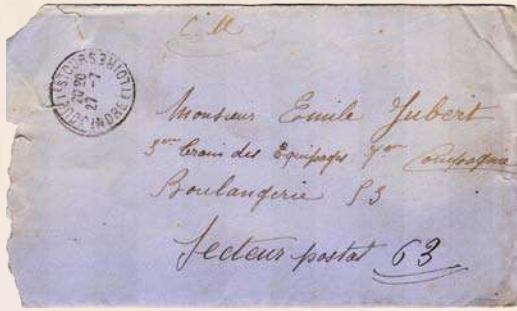 C. M
20 20
27 - 7
INDRE ET LOIRE
Monsieur Emile Jubert
5me Train des Equipages 7me Compagnie
Boulangerie P3
Secteur postal 63